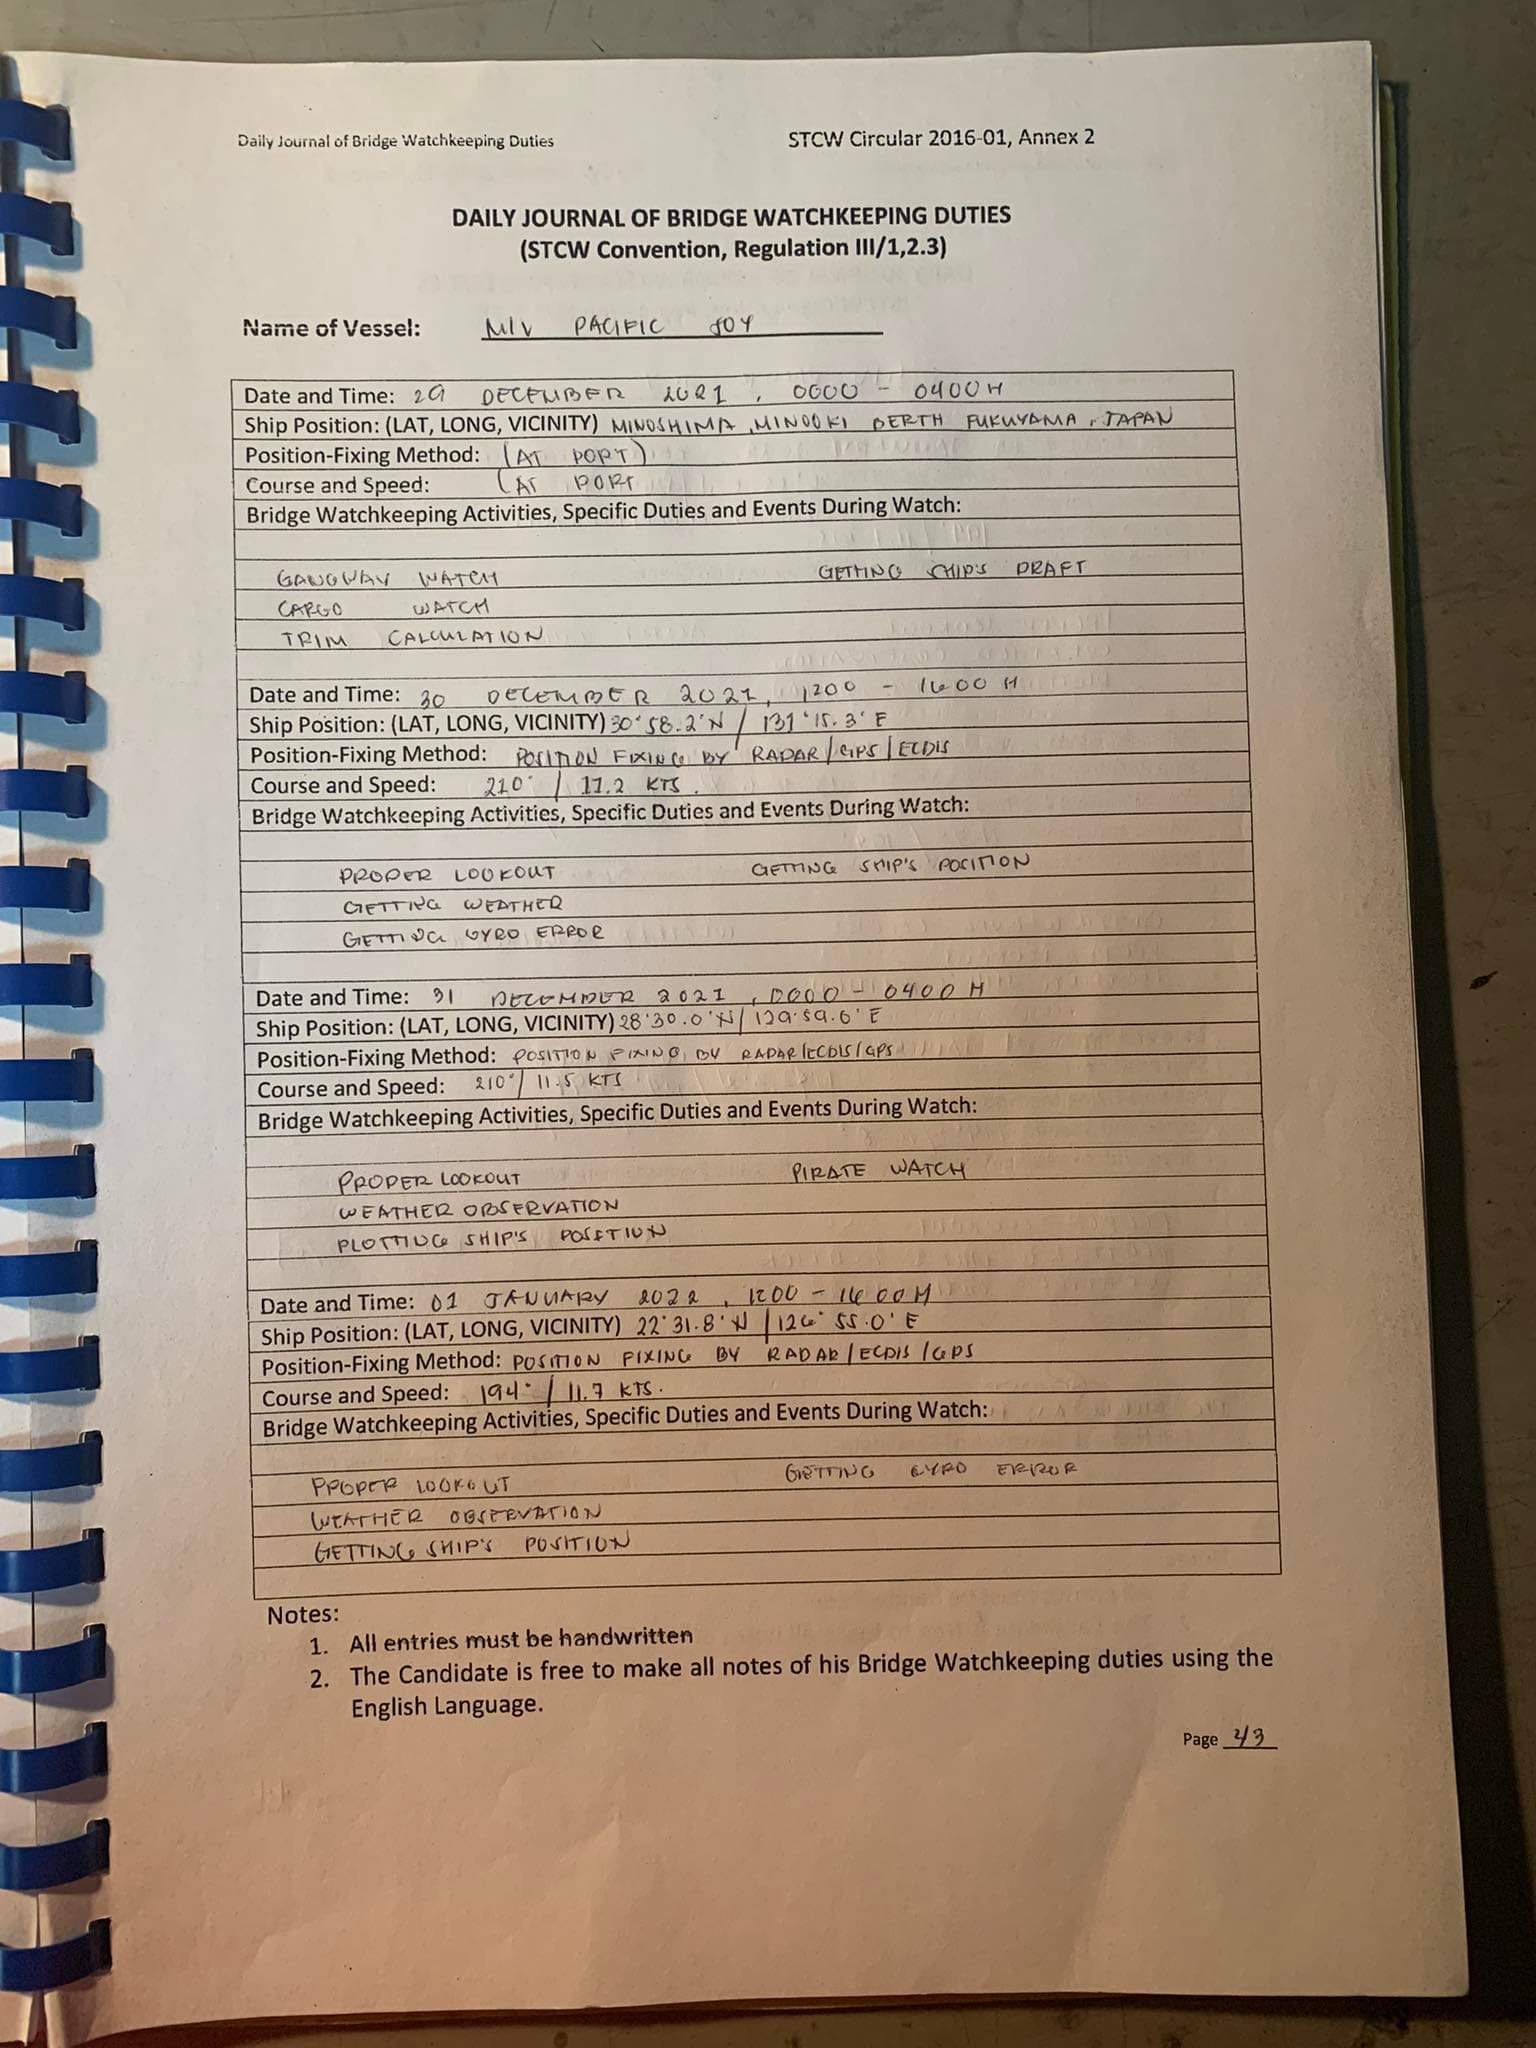 Daily Journal of Bridge Watchkeeping Duties STCW Circular 2016-01, Annex 2
DAILY JOURNAL OF BRIDGE WATCHKEEPING DUTIES
(STCW Convention, Regulation III/1,2.3)
Name of Vessel: M/V PACIFIC JOY
Date and Time: 29 DECEMBER 2021, 0000 - 0400H
Ship Position: (LAT, LONG, VICINITY) MINOSHIMA, MINOOKI BERTH FUKUYAMA, JAPAN
Position-Fixing Method: (AT PORT)
Course and Speed: (AT PORT
Bridge Watchkeeping Activities, Specific Duties and Events During Watch:
GANGWAY WATCH GETTING SHIP'S DRAFT
CARGO WATCH
TRIM CALCULATION
Date and Time: 30 DECEMBER 2021, 1200 - 1600 H
Ship Position: (LAT, LONG, VICINITY) 30°58.2'N / 131°15.3'E
Position-Fixing Method: POSITION FIXING BY RADAR/GPS/ECDIS
Course and Speed: 210° / 11.2 KTS.
Bridge Watchkeeping Activities, Specific Duties and Events During Watch:
PROPER LOOKOUT GETTING SHIP'S POSITION
GETTING WEATHER
GETTING GYRO ERROR
Date and Time: 31 DECEMBER 2021, 0000 - 0400 H
Ship Position: (LAT, LONG, VICINITY) 28°30.0'N/ 129°59.0'E
Position-Fixing Method: POSITION FIXING BY RADAR/ECDIS/GPS
Course and Speed: 210°/ 11.5 KTS
Bridge Watchkeeping Activities, Specific Duties and Events During Watch:
PROPER LOOKOUT PIRATE WATCH
WEATHER OBSERVATION
PLOTTING SHIP'S POSITION
Date and Time: 01 JANUARY 2022, 1200 - 1600H
Ship Position: (LAT, LONG, VICINITY) 22°31.8'N / 126°55.0'E
Position-Fixing Method: POSITION FIXING BY RADAR/ECDIS/GPS
Course and Speed: 194° / 11.7 KTS.
Bridge Watchkeeping Activities, Specific Duties and Events During Watch:
PROPER LOOKOUT GETTING GYRO ERROR
WEATHER OBSERVATION
GETTING SHIP'S POSITION
Notes:
1. All entries must be handwritten
2. The Candidate is free to make all notes of his Bridge Watchkeeping duties using the
English Language.
Page 43